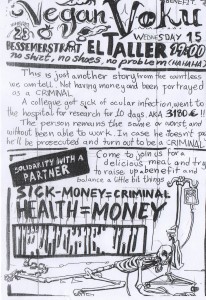 BENEFIT
Vegan Voku
WEDNESDAY 15
BESSEMERSTRAAT EL TALLER
no shirt, no shoes, no problem (HAHAHA)
This is just another story from the countless
we emit. Not having money and been portrayed
as a CRIMINAL
A colleague got sick of ocular infection went to
the hospital for research for 10 days. AKA 3180€!!
The person remains the same or worst and
without been able to work. In case he doesnt pay
he'll be prosecuted and turn out to be a CRIMINAL
SOLIDARITY WITH A
PARTNER
Come to join us for a
delicious meal and try
to raise up benefit and
balance a little bit things
SICK-MONEY=CRIMINAL
HEALTH=MONEY